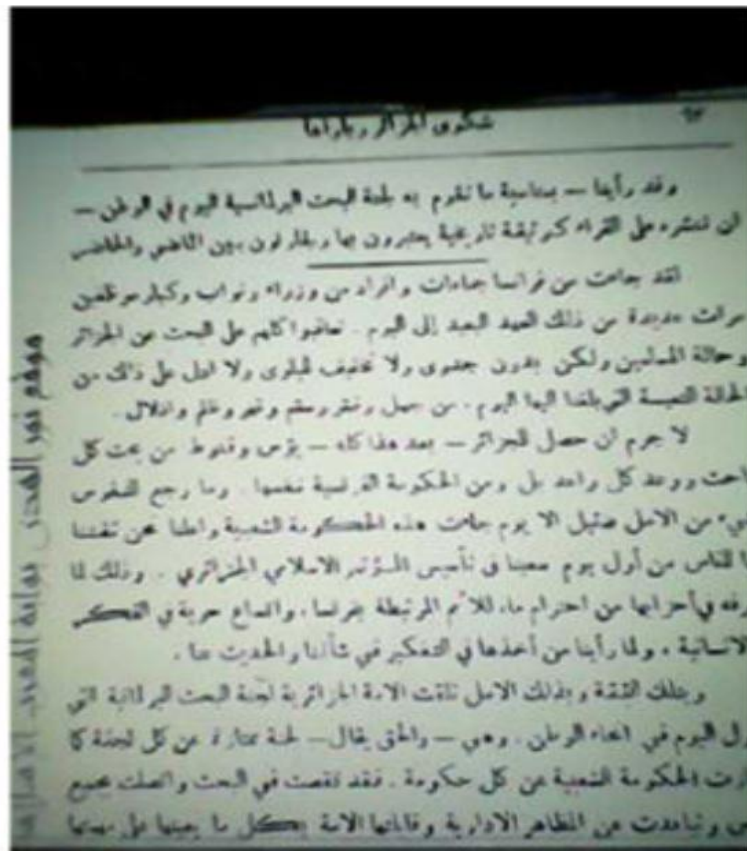 شكوى الجزائر
وقد رأينا — بمناسبة ما تقوم به لجنة البحث البرلمانية اليوم في الوطن —
ان ننشره على القراء كوثيقة تاريخية يعتبرون بها ويقارنون بين الماضي والحاضر
لقد جاءت من فرانسا جماعات وافراد من وزراء ونواب وكبار موظفين
مرات عديدة من ذلك العهد البعيد إلى اليوم . تعاقبوا كلهم على البحث عن الجزائر
وحالة المسلمين ولكن بدون جدوى ولا تخفيف للبلوى ولا ادل على ذلك من
الحالة التعيسة التي بلغنا اليها اليوم ، من جهل وفقر وسقم وقهر وظلم واذلال .
لا جرم ان حصل للجزائر — بعد هذا كله — يؤس وقنوط من بحث كل
باحث ووعد كل واعد بل ومن الحكومة الفرنسية نفسها . وما رجع للنفوس
شيء من الامل ضئيل الا يوم جاءت هذه الحكومة الشعبية واعلنا نحن ثقتنا
بها للناس من أول يوم سعينا في تأسيس المؤتمر الاسلامي الجزائري . وذلك لما
نعرفه في أحزابها من احترام ما، للأمم المرتبطة بفرنسا، واتساع حرية في الفكر
والانسانية ، ولما رأينا من أخذها في التفكير في شأننا والحديث عنا .
وبتلك الثقة وبذلك الامل تلقت الامة الجزائرية لجنة البحث البرلمانية التي
تجول اليوم في انحاء الوطن . وهي — والحق يقال — لجنة ممتازة عن كل لجنة كما
امتازت الحكومة الشعبية عن كل حكومة . فقد تقصت في البحث واتصلت بجميع
وتباعدت عن المظاهر الادارية وقابلتها الامة بكل ما يعينها على مهمتها
موقع نور الهدى بوابة المغرب